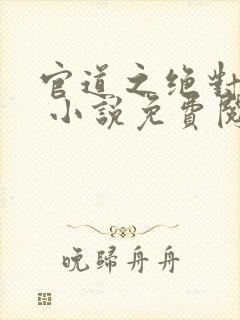 官道之绝對
小說免費閱
晚歸舟舟